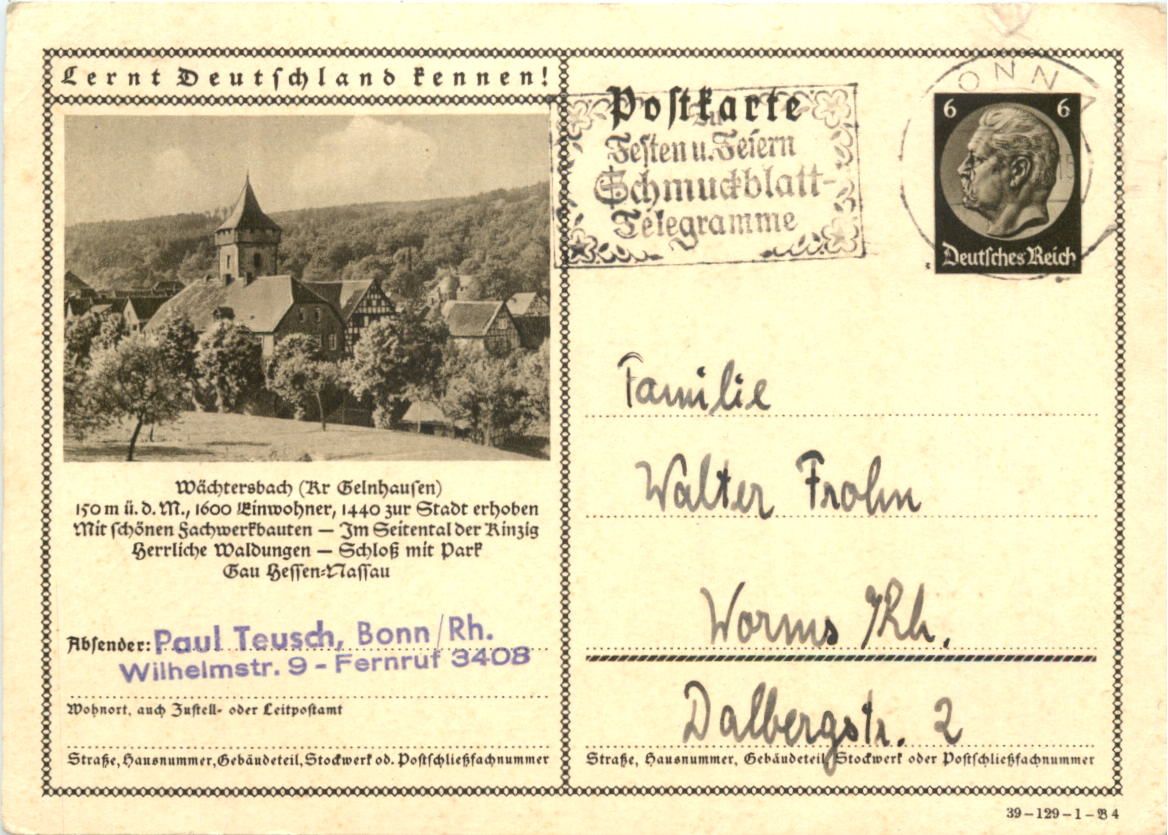 Lernt Deutschland kennen!
Wächtersbach (Kr Gelnhausen)
150 m ü. d. M., 1600 Einwohner, 1440 zur Stadt erhoben
Mit schönen Fachwerkbauten — Im Seitental der Kinzig
Herrliche Waldungen — Schloß mit Park
Gau Hessen-Nassau
Absender: Paul Teusch, Bonn/Rh.
Wilhelmstr. 9 - Fernruf 3408
Wohnort, auch Zustell- oder Leitpostamt
Straße, Hausnummer, Gebäudeteil, Stockwerk od. Postschließfachnummer
Postkarte
Zu
Festen u. Feiern
Schmuckblatt-
Telegramme
BONN
6 6
Deutsches Reich
Familie
Walter Frohn
Worms /Rh.
Dalbergstr. 2
Straße, Hausnummer, Gebäudeteil, Stockwerk oder Postschließfachnummer
39-129-1-B 4